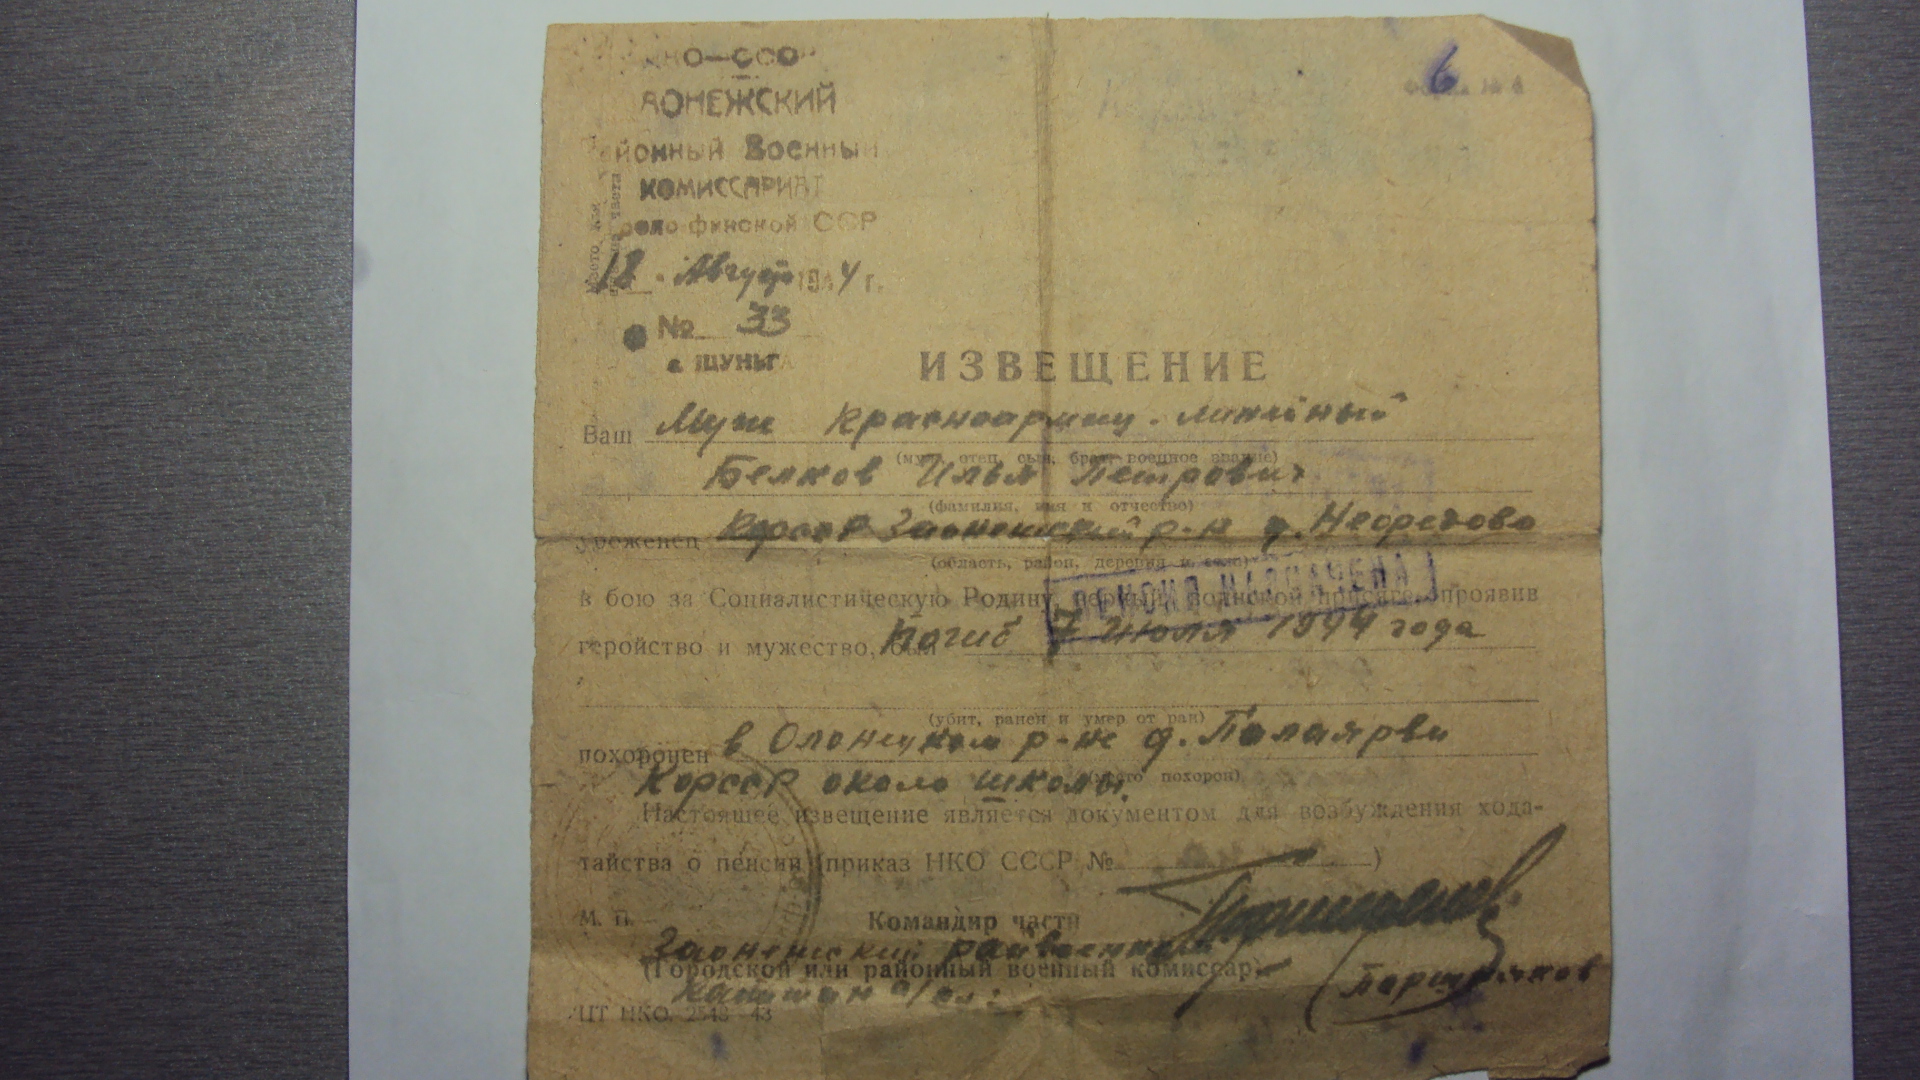 НКО-СССР
АОНЕЖСКИЙ
районный Военный
КОМИССАРИАТ
рело финской ССР
18 Август 1944 г.
№ 33
с ШУНЬГА
6
Форма № 4
ИЗВЕЩЕНИЕ
Ваш Муж красноармеец линейный
(муж, отец, сын, брат, военное звание)
Белков Илья Петрович
(фамилия, имя и отчество)
уроженец Кфсср Заонежский р-н д.
(область, район, деревня и село)
в бою за Социалистическую Родину, верный воинской присяге, проявив
ПЕНСИЯ НАЗНАЧЕНА
геройство и мужество, был Погиб 7 июля 1944 года
(убит, ранен и умер от ран)
похоронен в Олонецком р-не д. Палаярви
(место похорон)
Кфсср около школы.
Настоящее извещение является документом для возбуждения хода-
тайства о пенсии (приказ НКО СССР № )
М. П.
Командир части
Заонежский райвоенком
(Городской или районный военный комиссар)
Капитан а/сл:
ЦТ НКО. 2543—43